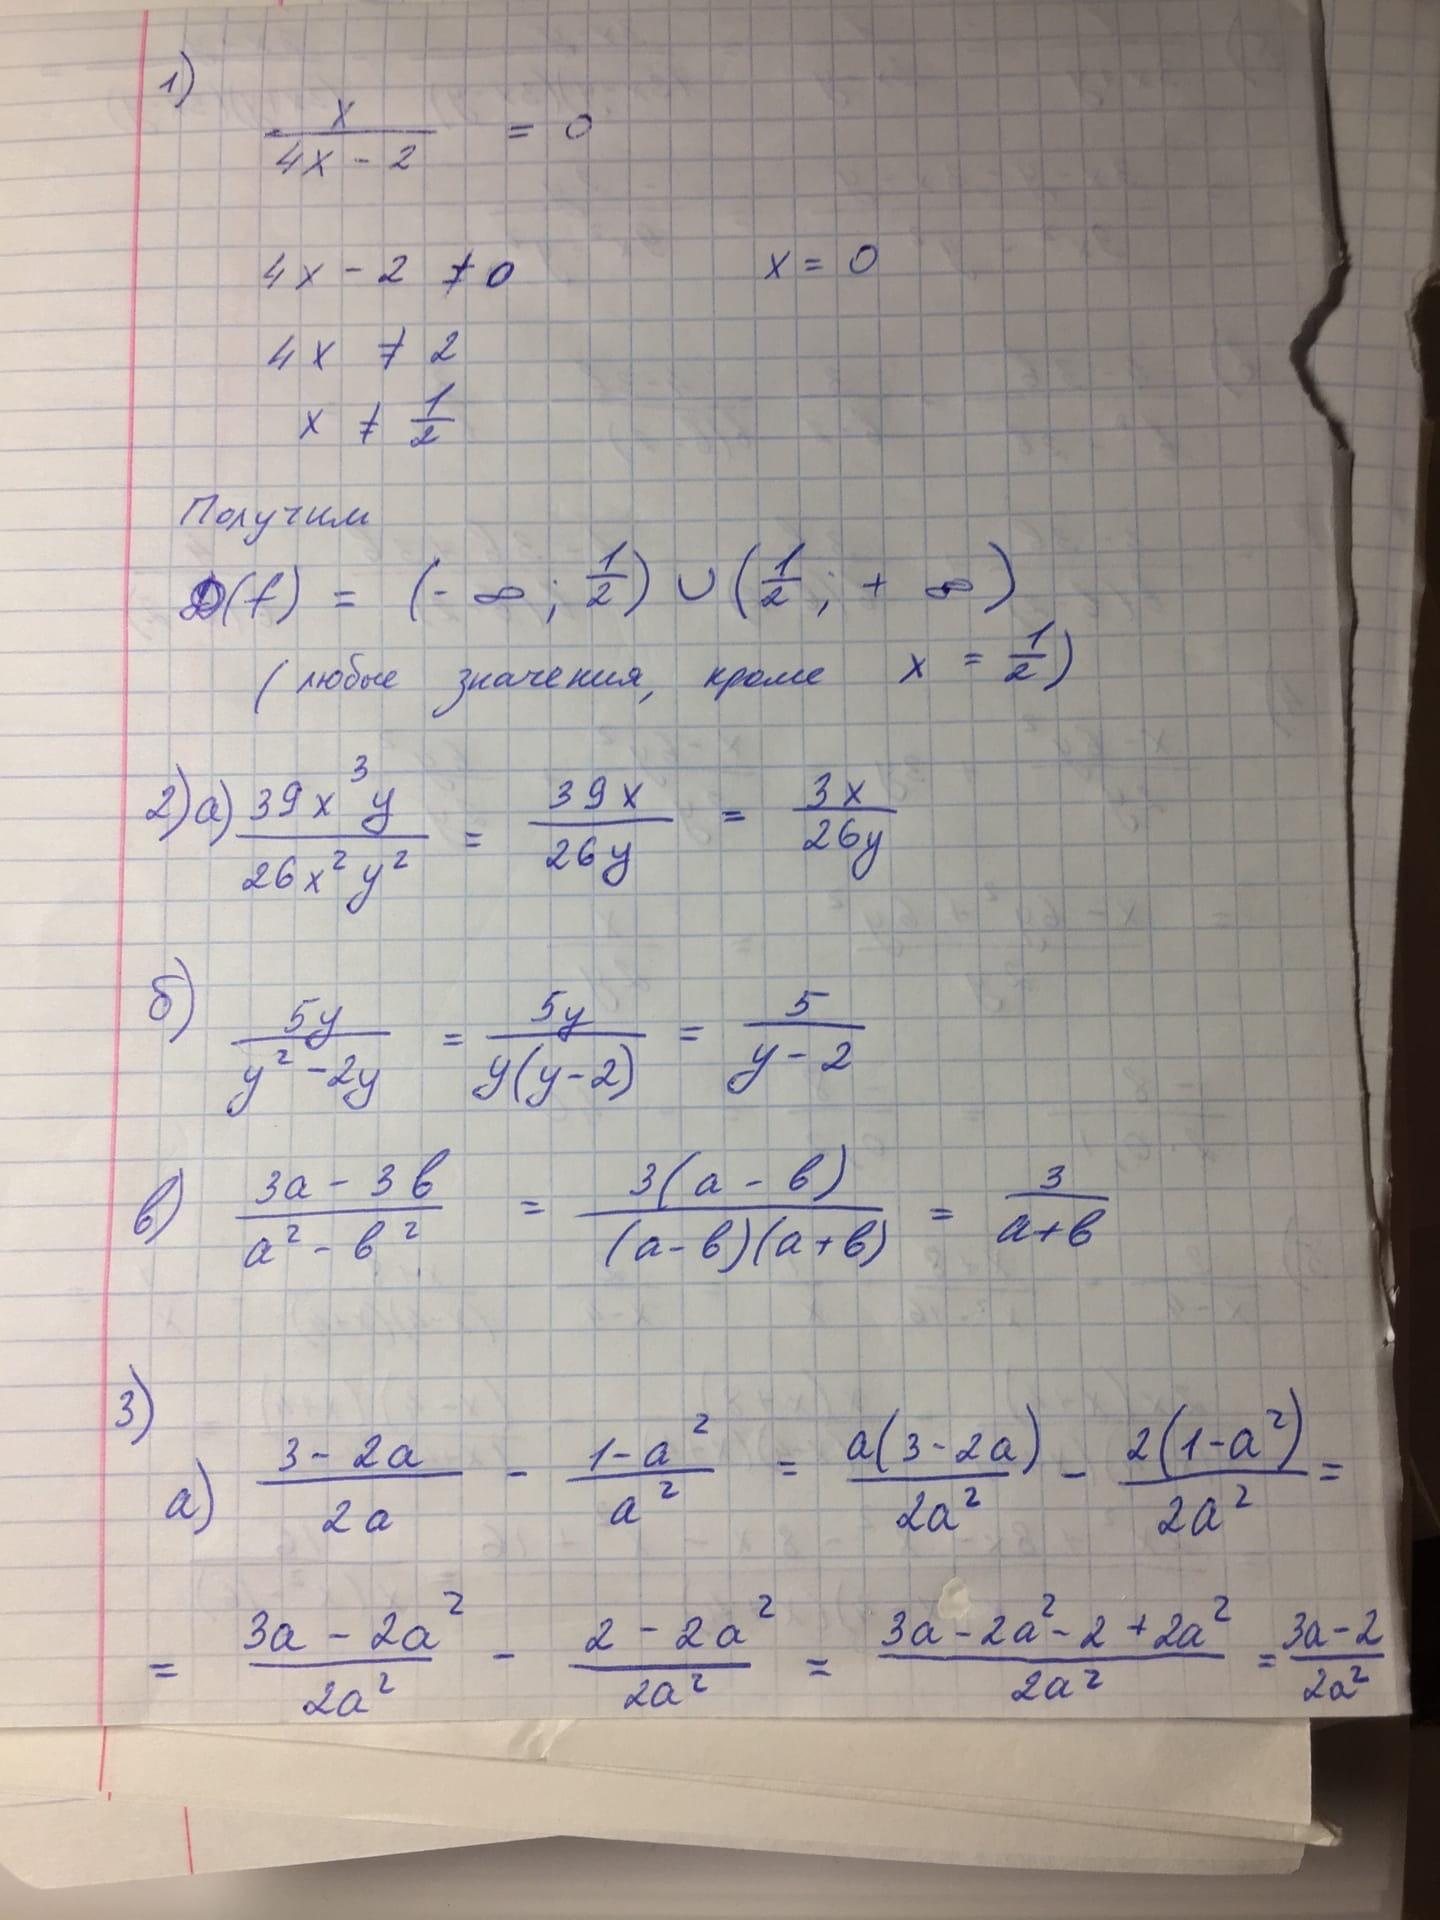 1)
x/(4x - 2) = 0
4x - 2 ≠ 0    x = 0
4x ≠ 2
x ≠ 1/2
Получим
D(f) = (- ∞; 1/2) ∪ (1/2; + ∞)
(любые значения, кроме x = 1/2)
2) а) 39x³y/26x²y² = 39x/26y = 3x/26y
б) 5y/(y² - 2y) = 5y/(y(y-2)) = 5/(y - 2)
в) (3a - 3b)/(a² - b²) = 3(a - b)/((a-b)(a+b)) = 3/(a+b)
3)
а) (3 - 2a)/2a - (1-a²)/a² = a(3-2a)/2a² - 2(1-a²)/2a² =
= (3a - 2a²)/2a² - (2 - 2a²)/2a² = (3a - 2a² - 2 + 2a²)/2a² = (3a-2)/2a²